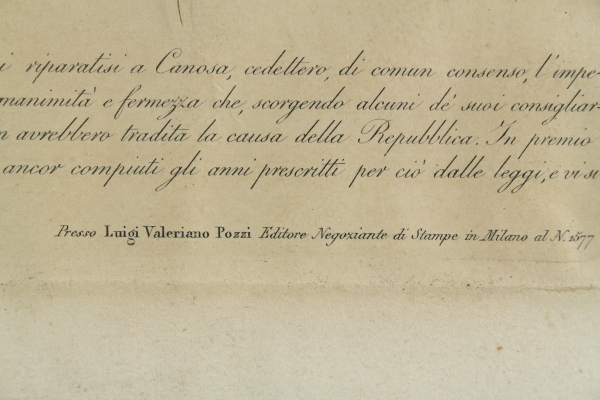 i riparatisi a Canosa, cedettero, di comun consenso, l'impe-
manimità e fermezza che, scorgendo alcuni de' suoi consigliar-
n avrebbero tradita la causa della Repubblica. In premio
ancor compiuti gli anni prescritti per ciò dalle leggi, e vi si
Presso Luigi Valeriano Pozzi Editore Negoziante di Stampe in Milano al N. 1577